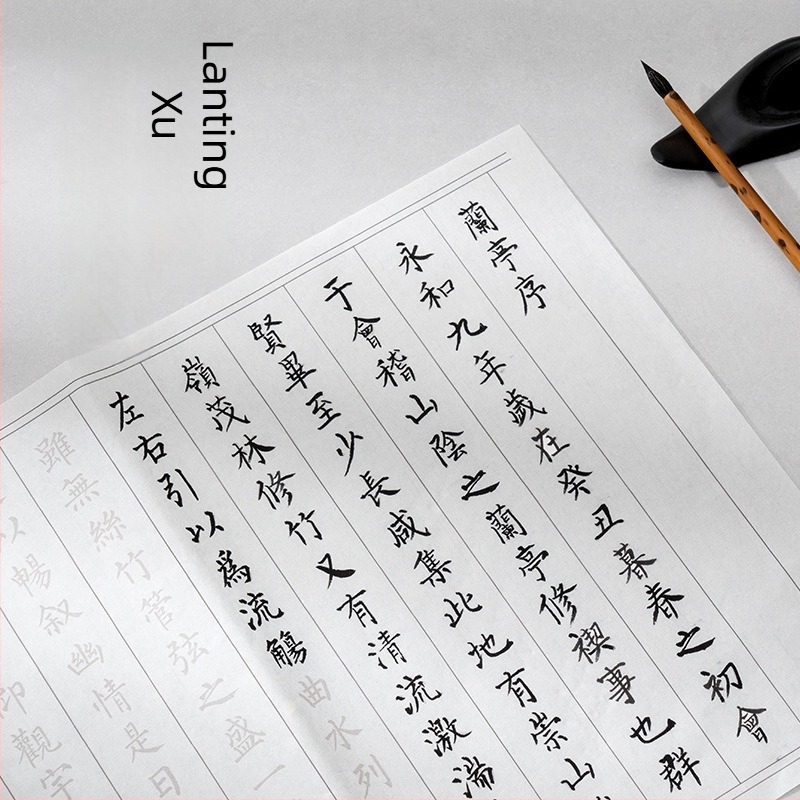 Lanting
Xu
蘭亭序
永和九年歲在癸丑暮春之初會
于會稽山陰之蘭亭修禊事也群
賢畢至少長咸集此地有崇山
嶺茂林修竹又有清流激湍
左右引以爲流觴曲水列
雖無絲竹管弦之盛一
以暢叙幽情是日
仰觀宇